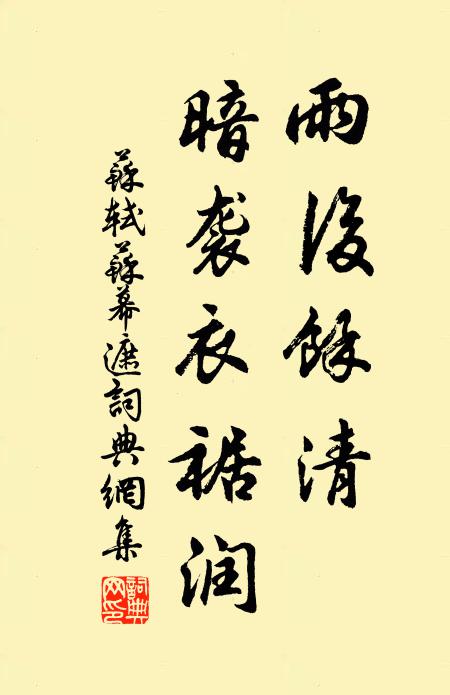 雨後餘清
暗袭衣裾润
蘇軾蘇幕遮詞典網集
詞典网印